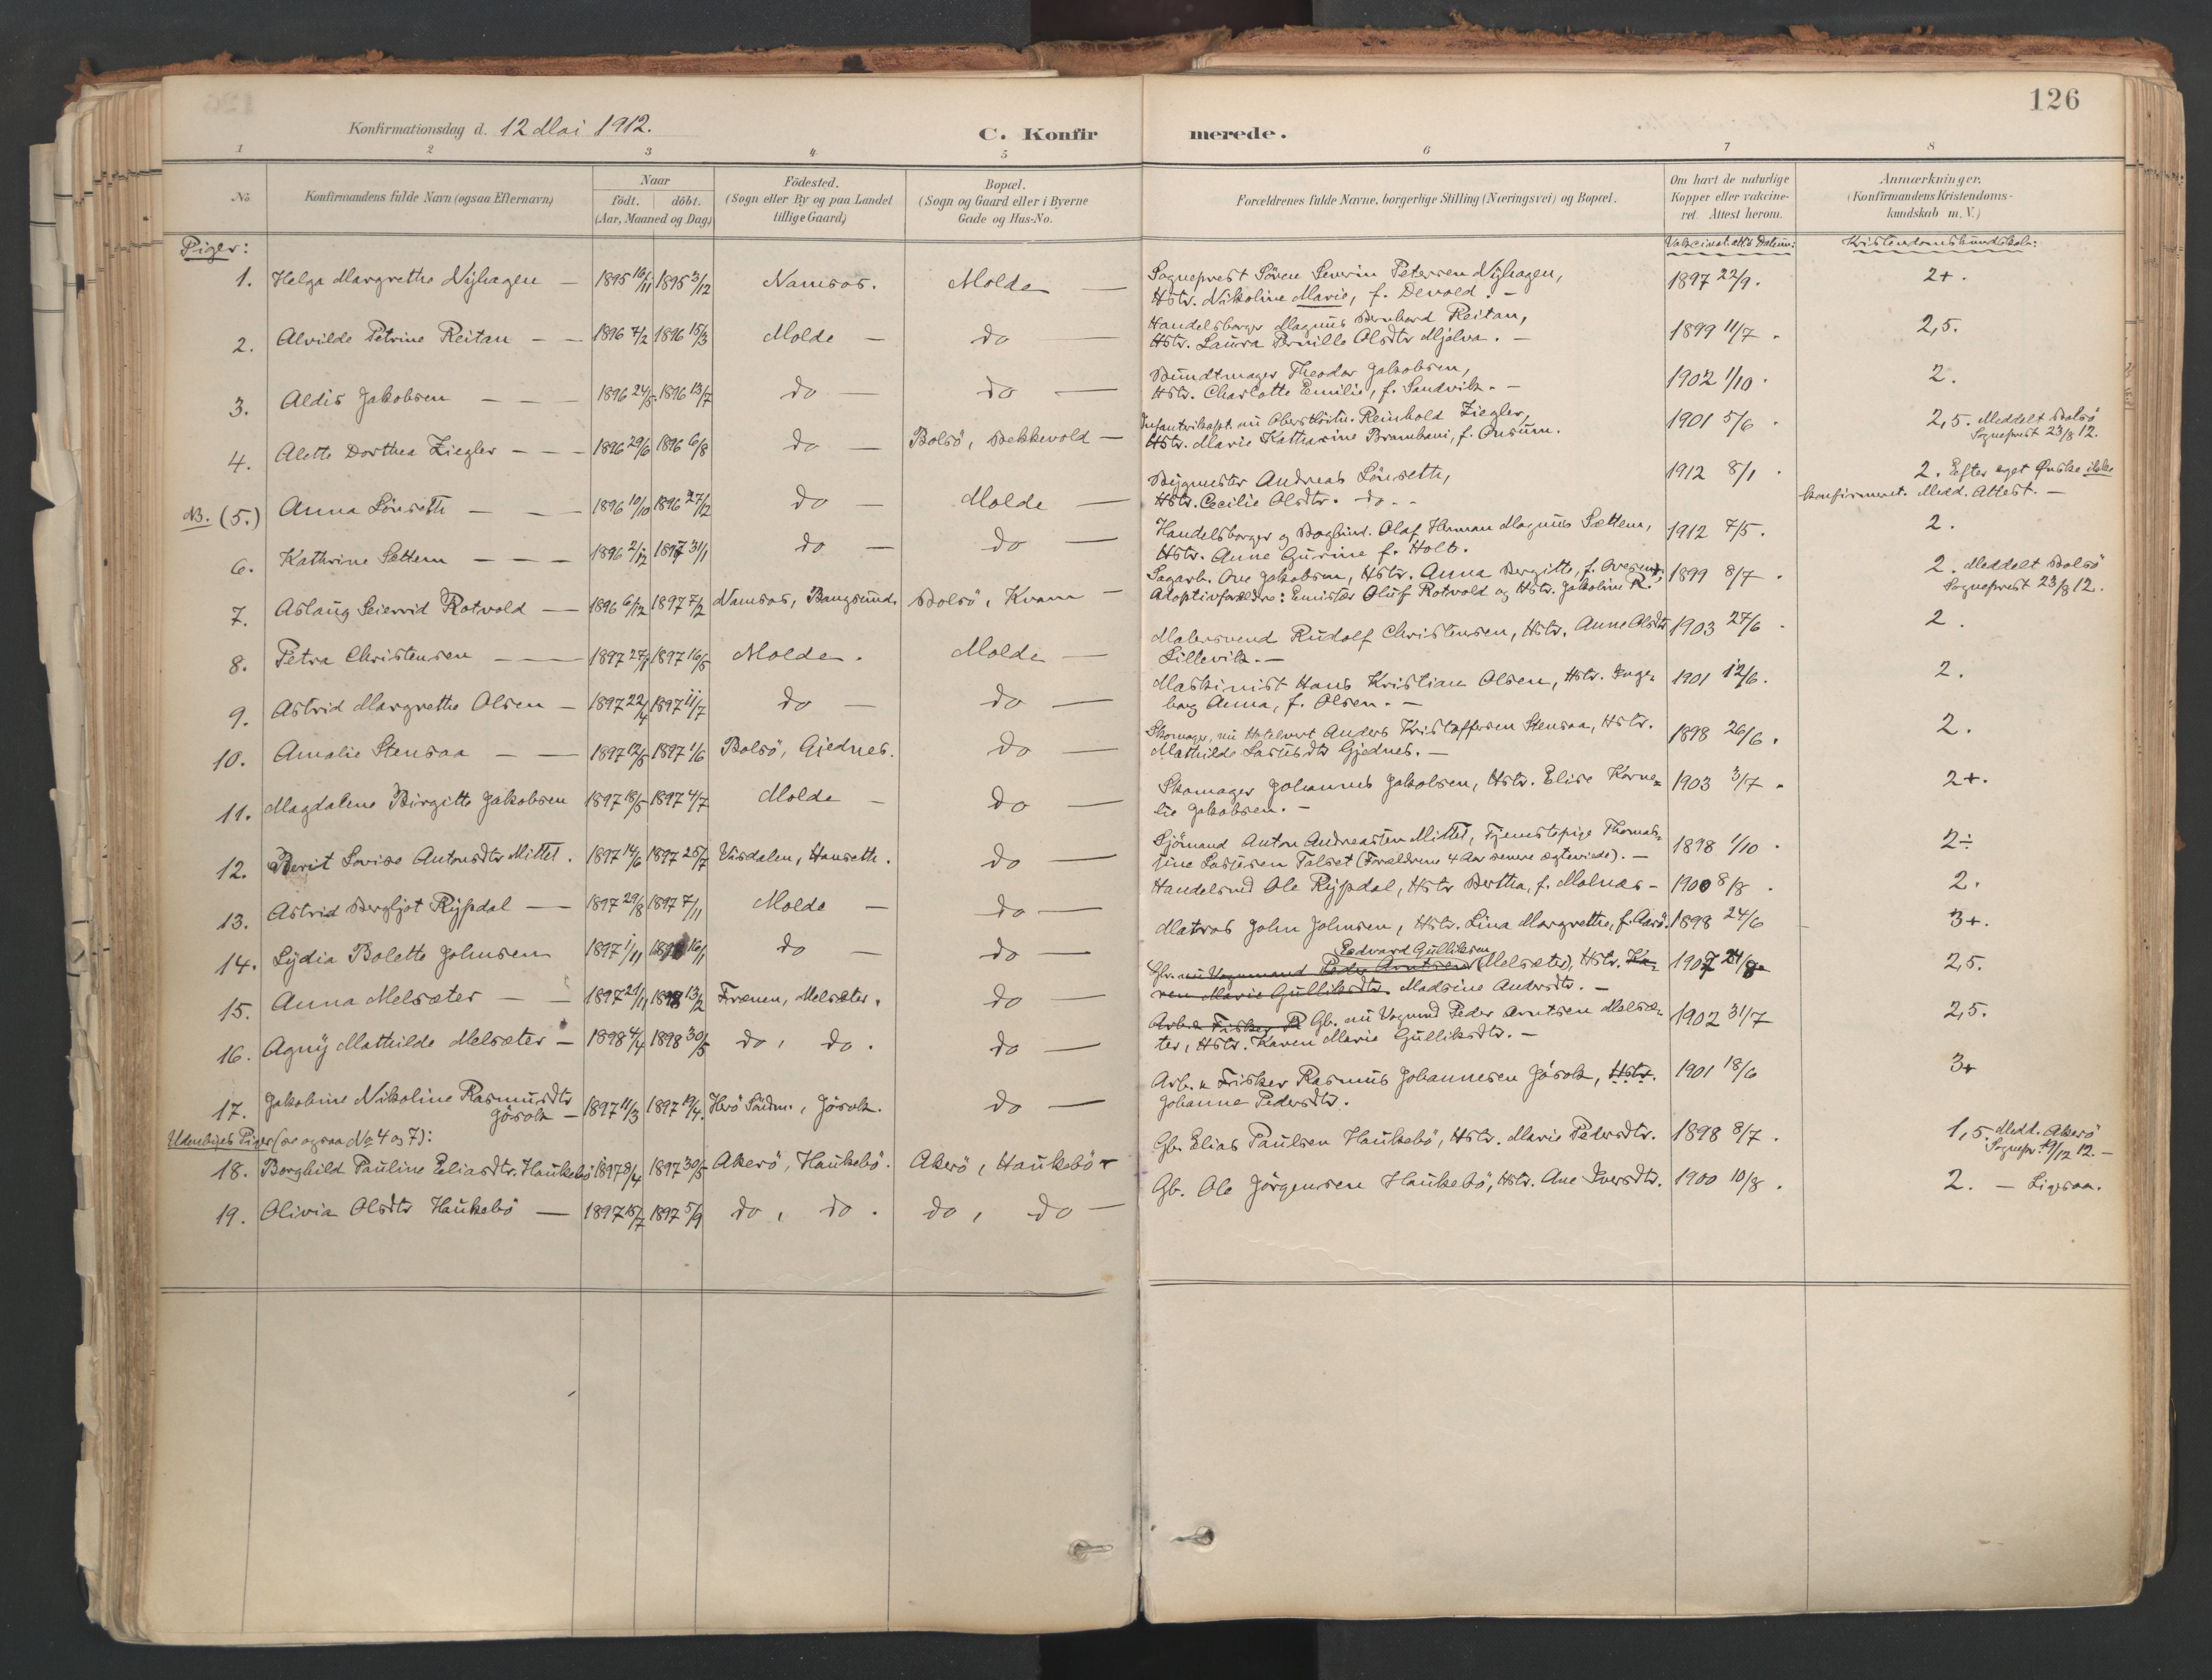 126
Konfirmationsdag d. 12 Mai 1912.
C. Konfir merede.
1 2 3 4 5 6 7 8
No.
Konfirmandens fulde Navn (ogsaa Efternavn)
Naar
födt. döbt.
(Aar, Maaned og Dag)
Födested.
(Sogn eller By og paa Landet
tillige Gaard)
Bopæl.
(Sogn og Gaard eller i Byerne
Gade og Hus-No.
Forældrenes fulde Navne, borgerlige Stilling (Næringsvei) og Bopæl.
Om havt de naturlige
Kopper eller vakcine-
ret. Attest herom.
Anmærkninger.
(Konfirmandens Kristendoms-
kundskab m. V.)
Piger:
Vakcinat. atts Datum:
Kristendomskundskab:
1. Helga Margrethe Nÿhagen — 1895 16/11 1895 3/12 Namsos. Molde — Sogneprest Sören Severin Petersen Nÿhagen, 1897 22/9. 2+.
Hstr. Nikoline Marie, f. Devold. —
2. Alvilde Petrine Reitan — — 1896 7/2 1896 15/3 Molde — do — Handelsborger Magnus Bernhard Reitan, 1899 11/7. 2,5.
Hstr. Laura Pernille Olsdtr Mjelva. —
3. Aldis Jakobsen — — — 1896 24/5 1896 13/7 do — do — Bundtmager Theodor Jakobsen, 1902 1/10. 2.
Hstr. Charlotte Emilie, f. Sandvik. —
4. Alette Dorthea Ziegler — — — 1896 29/6 1896 6/8 do — Bolsö, Bekkevold — Infanterikapt. nu Oberstlöitn. Reinhold Ziegler, 1901 5/6. 2,5. Meddelt Bolsö
Hstr. Marie Katharine Brambani, f. Onsum. Sogneprest 23/8 12.
NB. (5.) Anna Lönseth — — 1896 10/10 1896 27/12 do — Molde — Bygmester Andreas Lönseth, 1912 8/1. 2. Efter eget Ønske ikke
Hstr. Cecilie Olsdtr. do. — konfirmeret. Medd. Attest. —
6. Kathrine Sættem — — — 1896 2/12 1897 31/1 do — do — Handelsborger og Bogbind. Olaf Herman Magnus Sættem, 1912 7/5. 2.
Hstr. Anne Gurine f. Holt.
7. Aslaug Seiervid Rotvold — 1896 6/12 1897 7/2 Namsos, Bangsund. Bolsö, Kvam — Sagarb. Ove Jakobsen, Hstr. Anna Bergitte, f. 1899 8/7. 2. Meddelt Bolsö
Adoptivforældre: Emissær Oluf Rotvold og Hstr. Jakoline R. Sogneprest 23/8 12.
8. Petra Christensen — — 1897 27/1 1897 16/5 Molde. Molde — Malersvend Rudolf Christensen, Hstr. Anne Olsdtr 1903 27/6. 2.
Lillevik. —
9. Astrid Margrethe Olsen — 1897 22/4 1897 11/7 do — do — Maskinist Hans Kristian Olsen, Hstr. Inge- 1901 12/6. 2.
borg Anna, f. Olsen. —
10. Amalie Stensaa — — 1897 12/5 1897 1/6 Bolsö, Gjednes. do — Skomager, nu Hotelvert Anders Kristoffersen Stensaa, Hstr. 1898 26/6. 2.
Mathilde Lasusdtr Gjednes. —
11. Magdalene Birgitte Jakobsen 1897 18/5 1897 4/7 Molde — do — Skomager Johannes Jakobsen, Hstr. Elise Korne- 1903 3/7. 2+.
lie Jakobsen. —
12. Berit Lovise Antonsdtr Mittet. 1897 14/6 1897 25/7 Visdalen, Hanseth. do — Sjömand Anton Andreassen Mittet, Tjenestepige Thomas- 1898 1/10. 2÷
sine Lasusen Talset (Forældrene 4 Aar senere ægteviede). —
13. Astrid Bergljot Rÿpdal — 1897 29/8 1897 7/11 Molde — do — Handelsmd Ole Rÿpdal, Hstr Bertha, f. Molnæs — 1900 8/8. 2.
14. Lÿdia Bolette Johnsen 1897 1/11 1898 16/1 do — do — Matros John Johnsen, Hstr. Lina Margrethe, f. Aarö. 1898 24/6 3+.
15. Anna Melsæter — — 1897 21/11 1898 13/2 Frænen, Melsæter. do — Gbr. nu Vognmand Peder Arntsen Edvard Gulliksen (Melsæter), Hstr. Ka- 1907 21/8 2,5.
ren Marie Gulliksdtr. Madsine Andersdtr. —
16. Agnÿ Mathilde Melsæter — 1898 4/4 1898 30/5 do, do. do — Arb. & Fisker P Gb. nu Vognmd Peder Arntsen Melsæ- 1902 31/7 2,5.
ter, Hstr. Karen Marie Gulliksdtr. —
17. Jakobine Nikoline Rasmusdtr Jösok — 1897 11/3 1897 19/4. Herö Söndm., Jösok. do — Arb. & Fisker Rasmus Johannesen Jösok, Hstr. 1901 18/6 3+
Johanne Pedersdtr.
Udenbyes Piger (se ogsaa No 4 og 7):
18. Borghild Pauline Eliasdtr. Haukebö 1897 9/4 1897 30/5 Akerö, Haukebö. Akerö, Haukebö — Gb. Elias Paulsen Haukebö, Hstr. Marie Pedersdtr. 1898 8/7. 1,5. Medd. Akerö
Sognepr. 19/12 12. —
19. Olivia Olsdtr Haukebö — 1897 15/7 1897 5/9 do, do. do, do — Gb. Ole Jörgensen Haukebö, Hstr. Ane Iversdtr. 1900 10/8. 2. — Ligesaa.